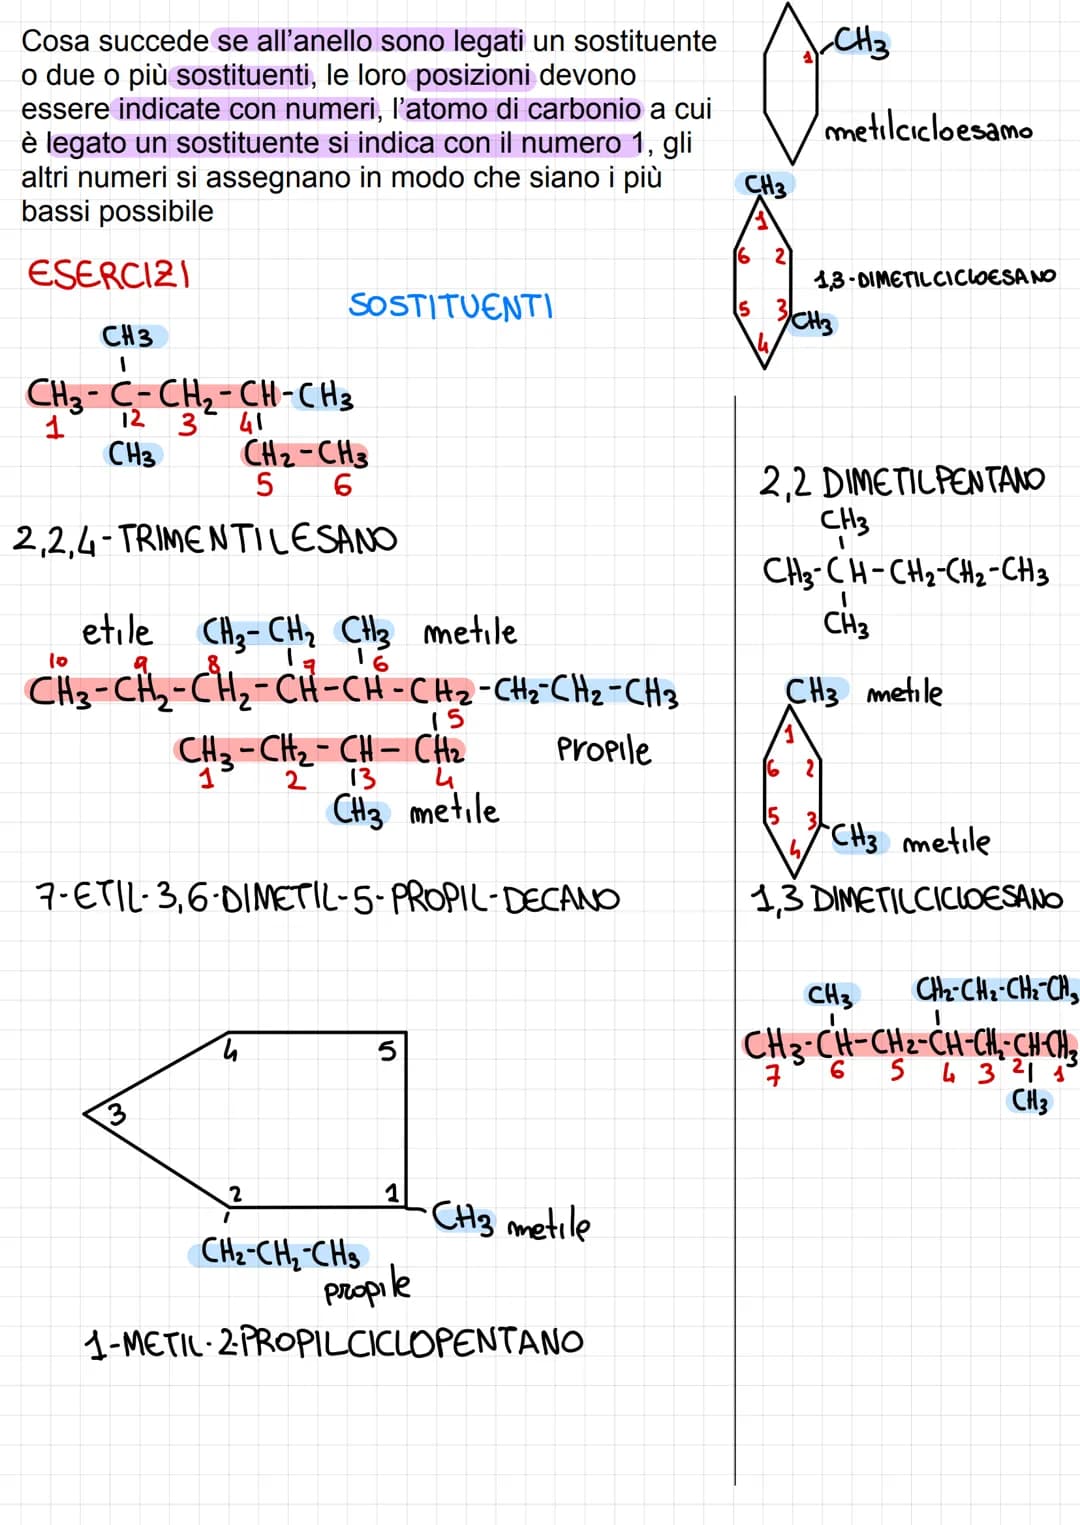 Cosa succede se all'anello sono legati un sostituente
o due o più sostituenti, le loro posizioni devono
essere indicate con numeri, l'atomo di carbonio a cui
è legato un sostituente si indica con il numero 1, gli
altri numeri si assegnano in modo che siano i più
bassi possibile
1 CH3
metilcicloesamo
CH3
1
6 2
1,3-DIMETILCICLOESANO
5 3 CH3
4
ESERCIZI
SOSTITUENTI
CH3
CH3-C-CH2-CH-CH3
1 2 3 4
CH3 CH2-CH3
5 6
2,2,4-TRIMENTILESANO
etile CH3-CH2 CH3 metile
10 9 8 7 6
CH3-CH2-CH2-CH-CH-CH2-CH2-CH2-CH3
5
CH3-CH2-CH-CH2 Propile
1 2 3 4
CH3 metile
7-ETIL-3,6-DIMETIL-5-PROPIL-DECANO
4 5
3
2 1
CH3 metile
CH2-CH2-CH3
propile
1-METIL-2-PROPILCICLOPENTANO
2,2 DIMETILPENTANO
CH3
CH3-CH-CH2-CH2-CH3
CH3
CH3 metile
1
6 2
5 3 CH3 metile
4
1,3 DIMETILCICLOESANO
CH3 CH2-CH2-CH2-CH3
CH3-CH-CH2-CH-CH2-CH-CH3
7 6 5 4 3 2 1
CH3